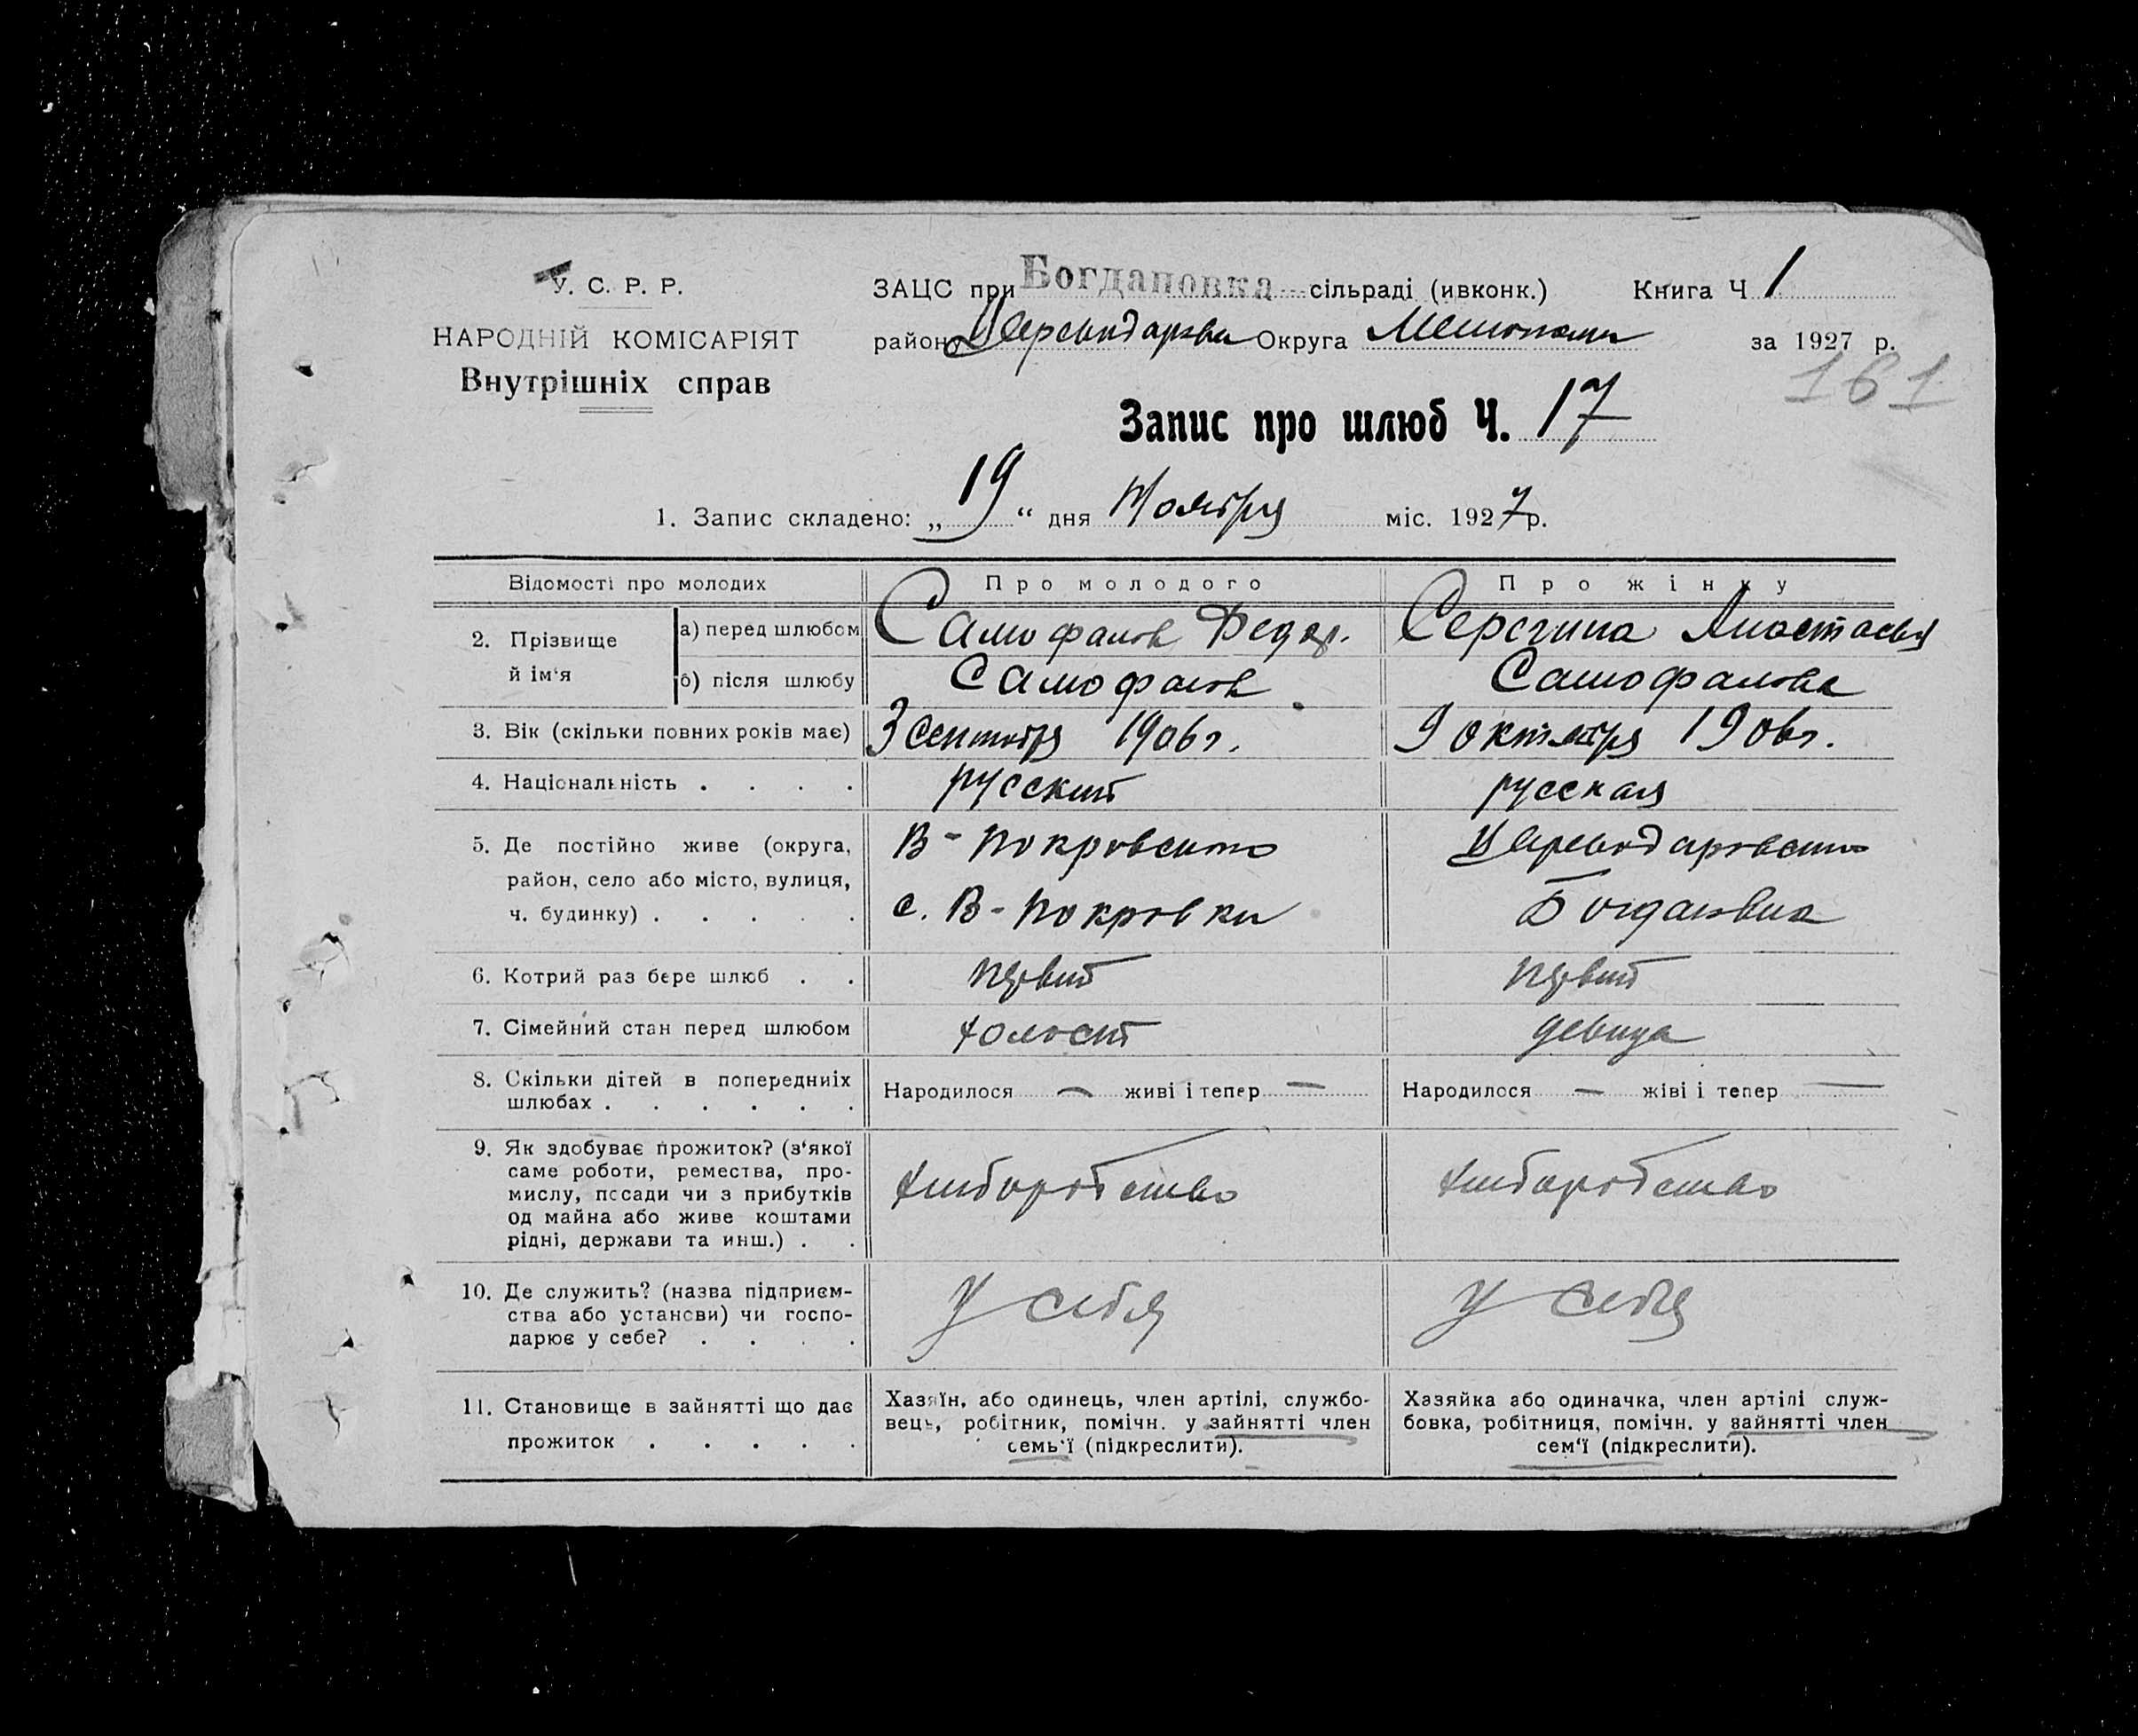 У. С. Р. Р.
НАРОДНІЙ КОМІСАРІЯТ
Внутрішніх справ
ЗАЦС при Богдановка сільраді (ивконк.) Книга Ч 1
району Округа Мелитополи за 1927 р.
161
Запис про шлюб Ч. 17
1. Запис складено: „19“ дня Ноября міс. 1927 р.
Відомості про молодих Про молодого Про жінку
2. Прізвище й ім'я
а) перед шлюбом Самофалов Федор. Серегина Анастасия
б) після шлюбу Самофалов Самофалова
3. Вік (скільки повних років має) 3 Сентября 1906 г. 9 октября 1906 г.
4. Національність . . . . русский русская
5. Де постійно живе (округа, В-Покровского
район, село або місто, вулиця,
ч. будинку) . . . . . с. В-Покровки Богдановка
6. Котрий раз бере шлюб . . первий первий
7. Сімейний стан перед шлюбом холост девица
8. Скільки дітей в попередниіх
шлюбах . . . . . . Народилося — живі і тепер — Народилося — жіві і тепер —
9. Як здобуває прожиток? (з'якої
саме роботи, ремества, про-
мислу, посади чи з прибутків хлиборобство хлиборобство
од майна або живе коштами
рідні, держави та инш.) . .
10. Де служить? (назва підприєм-
ства або установи) чи госпо- у себя у себя
дарює у себе? . . . .
11. Становище в зайнятті що дає
прожиток . . . . .
Хазяїн, або одинець, член артілі, службо-
вець, робітник, помічн. у зайнятті член
семь'ї (підкреслити).
Хазяйка або одиначка, член артілі служ-
бовка, робітниця, помічн. у зайнятті член
сем'ї (підкреслити).